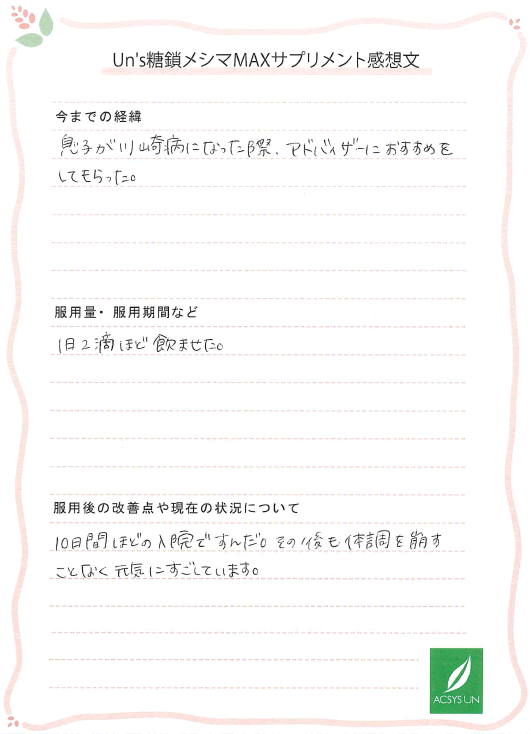 Un's糖鎖メシマMAXサプリメント感想文
今までの経緯
息子が川崎病になった際、アドバイザーにおすすめを
してもらった。
服用量・服用期間など
1日2滴ほど飲ませた。
服用後の改善点や現在の状況について
10日間ほどの入院ですんだ。その後も体調を崩す
ことなく元気にすごしています。
ACSYS UN